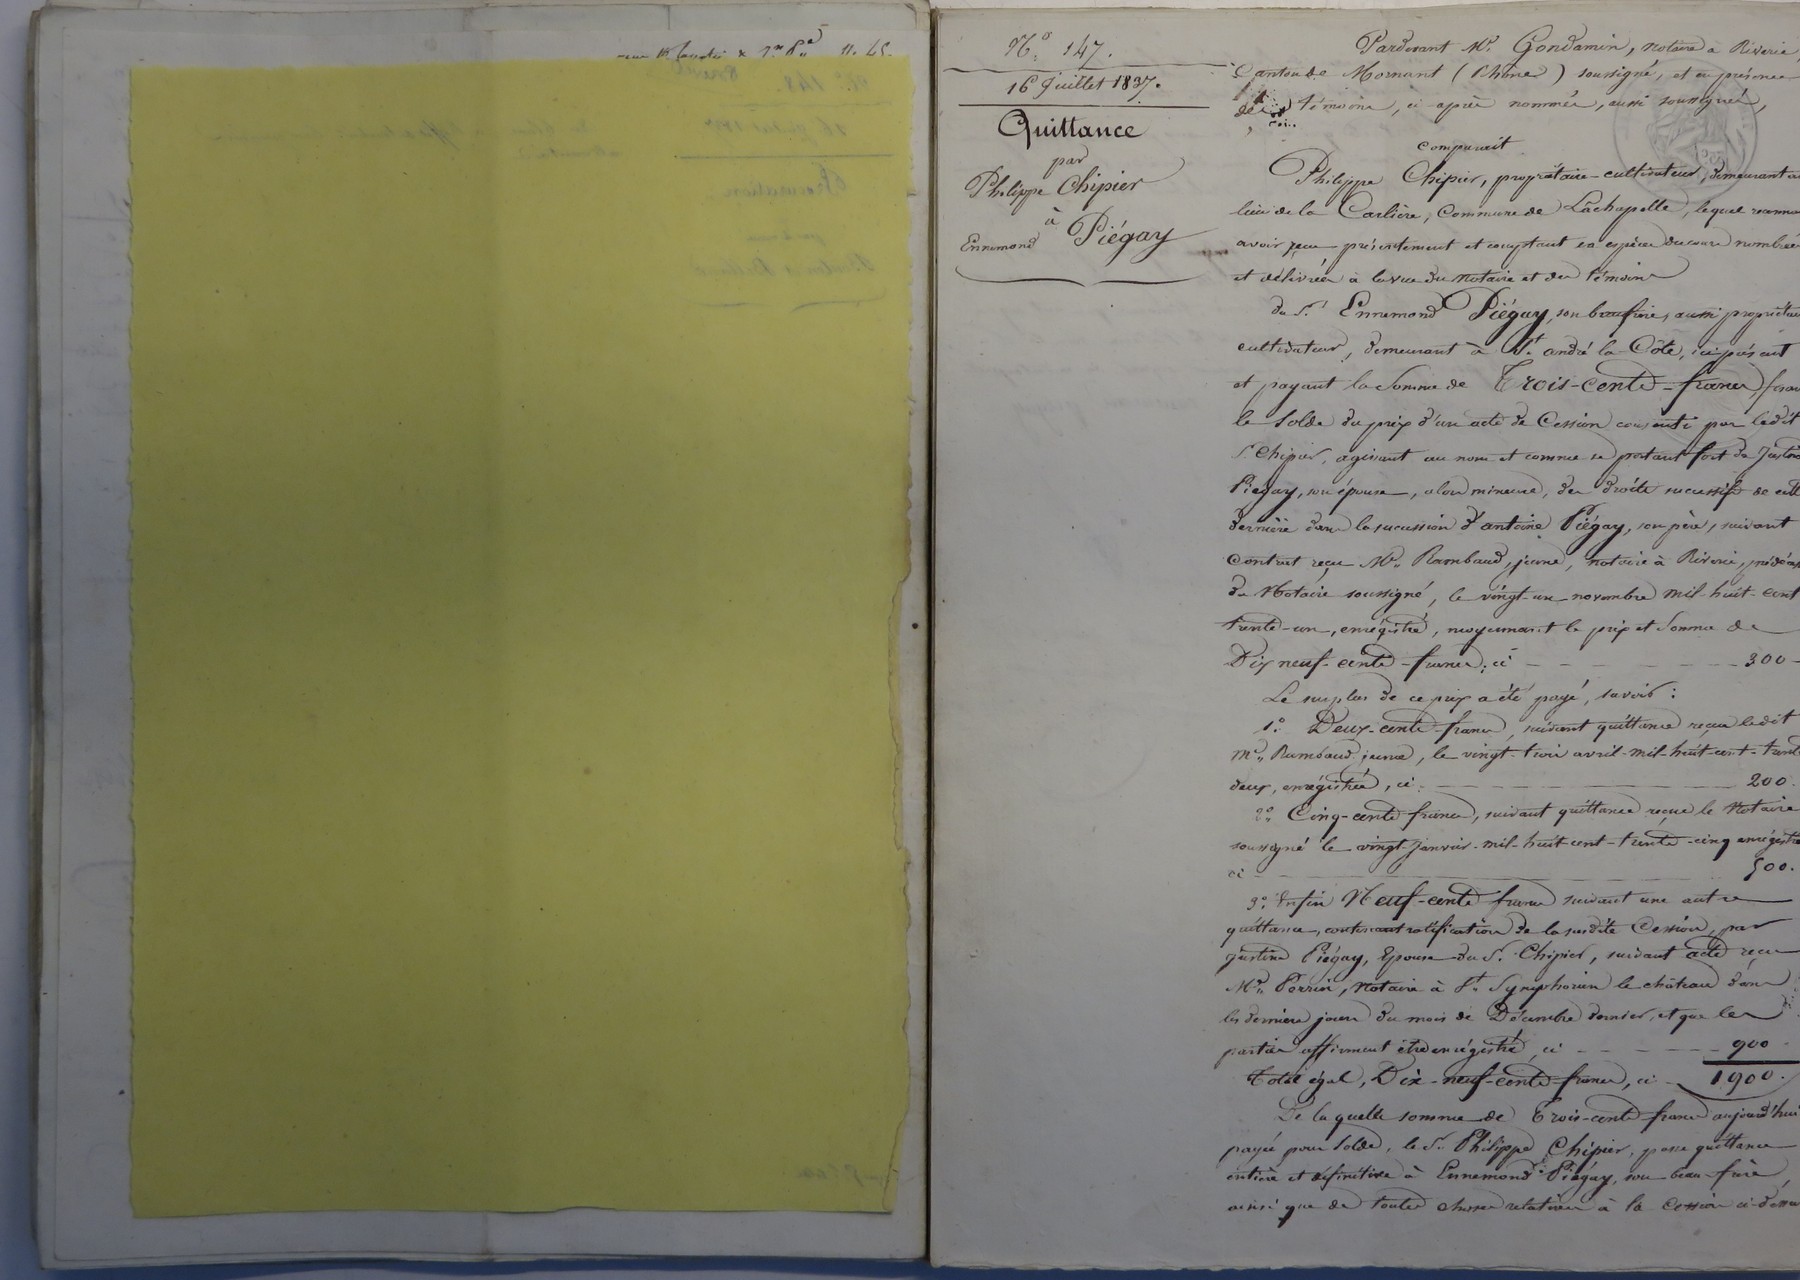 N.o 147.
16 Juillet 1837.
Quittance
par
Philippe Chipier
à
Ennemond Piégay
Pardevant Me. Gondamin, notaire à Riverie,
Canton de Mornant (Rhône) soussigné, et en présence
des témoins, ci après nommés, aussi soussignés,
comparait
Philippe Chipier, propriétaire-cultivateur, demeurant au
lieu de la Carlière, Commune de Lachapelle, lequel
avoir reçu présentement et comptant en espèces du cours nombrées
et délivrées à la vue du notaire et des témoins
du S.r Ennemond Piégay, son beaufrère, aussi propriétaire
cultivateur, demeurant à St. andré la Côte, ici présent
et payant la Somme de Trois-cents-francs
le Solde du prix d'un acte de Cession consenti par ledit
S.r Chipier, agissant au nom et comme se portant fort de Justine
Piégay, son épouse, alors mineure, des droits successifs de cette
dernière dans la succession d'antoine Piégay, son père, suivant
Contrat reçu Me. Rambaud, jeune, notaire à Riverie,
du Notaire soussigné, le vingt-un novembre mil-huit-cent
trente-un, enrégistré, moyennant le prix et Somme de
Dix neuf-cents-francs; ci 300
Le surplus de ce prix a été payé, savoir:
1.o Deux-cents-francs, suivant quittance reçue ledit
Me. Rambaud jeune, le vingt-trois avril-mil-huit-cent-trente
deux, enrégistrée, ci. 200.
2.o Cinq-cents francs, suivant quittance reçue le Notaire
soussigné le vingt-Janvier-mil-huit cent-trente-cinq enrégistrée
ci 500.
3.o Enfin Neuf-cents francs suivant une autre
quittance, contenant ratification de la susdite Cession, par
Justine Piégay, Epouse du S.r Chipier, suivant acte reçu
Me. Perrin, Notaire à St. Symphorien le château dans
les derniers jours du mois de Décembre dernier, et que les
parties affirment être enrégistré, ci 900
Total égal, Dix-neuf-cents-francs, ci 1900.
De laquelle somme de Trois-cents francs aujourd'hui
payée pour Solde, le S.r Philippe Chipier, passe quittance
entière et définitive à Ennemond Piégay, son beau-frère,
ainsi que de toutes choses relatives à la Cession ci-dessus